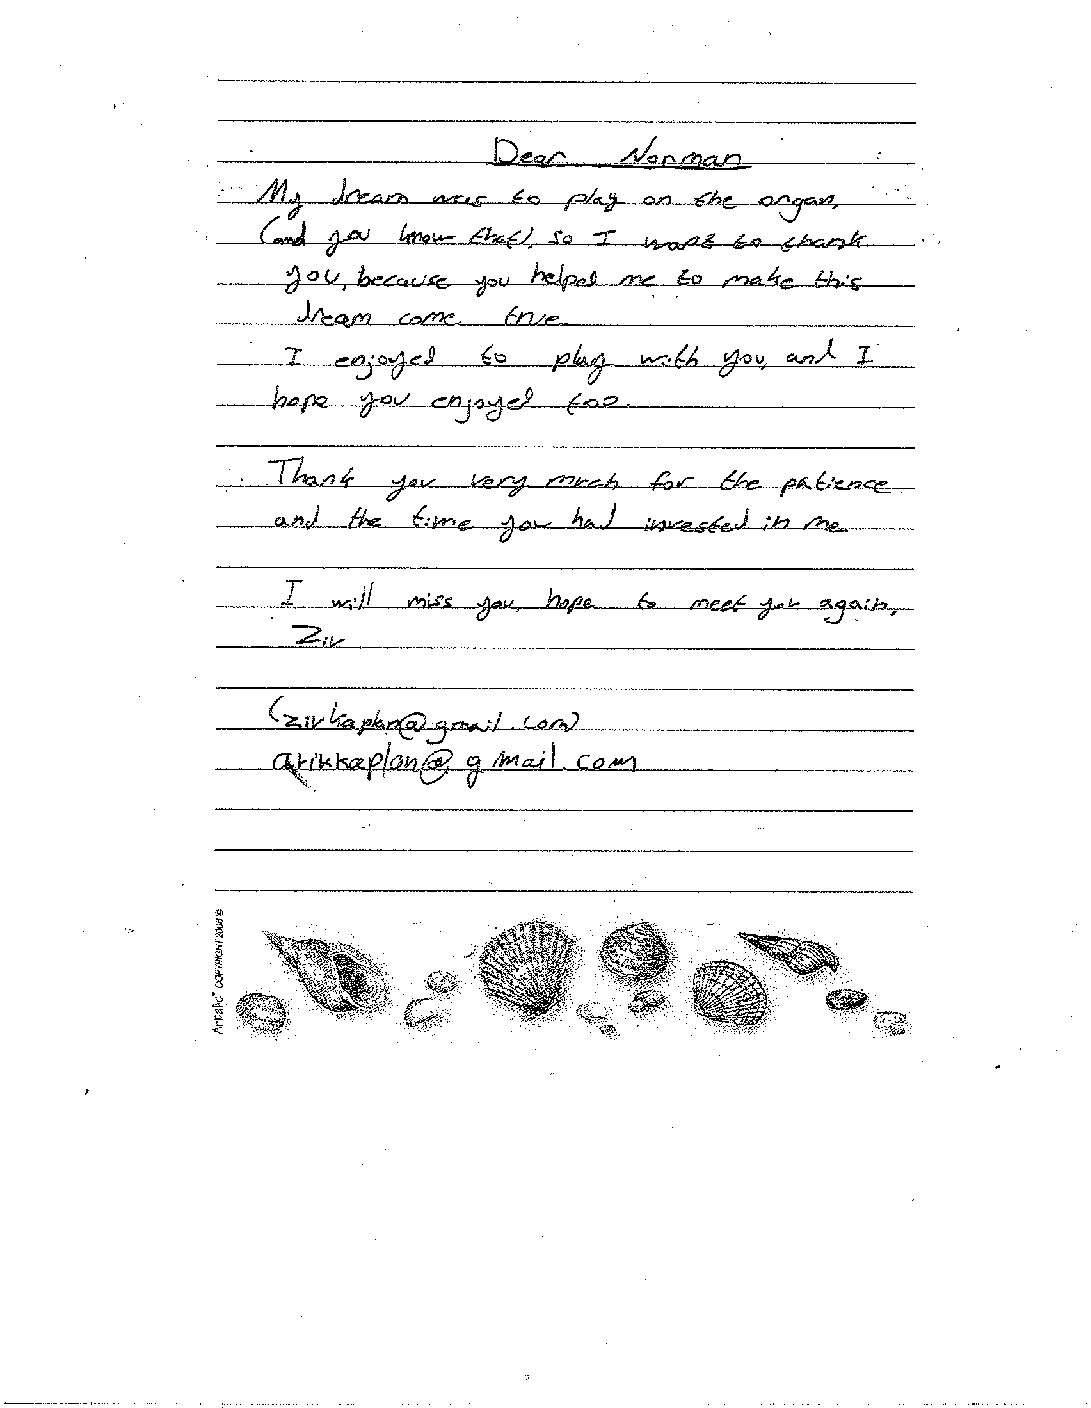 Dear Norman
My dream was to play on the organ,
(and you know that), so I want to thank
you, because you helped me to make this
dream come true.
I enjoyed to play with you, and I
hope you enjoyed too.
Thank you very much for the patience
and the time you had invested in me.
I will miss you, hope to meet you again,
Ziv
(zivkaplan@gmail.com)
arikkaplan@gmail.com
COPYRIGHT 2008